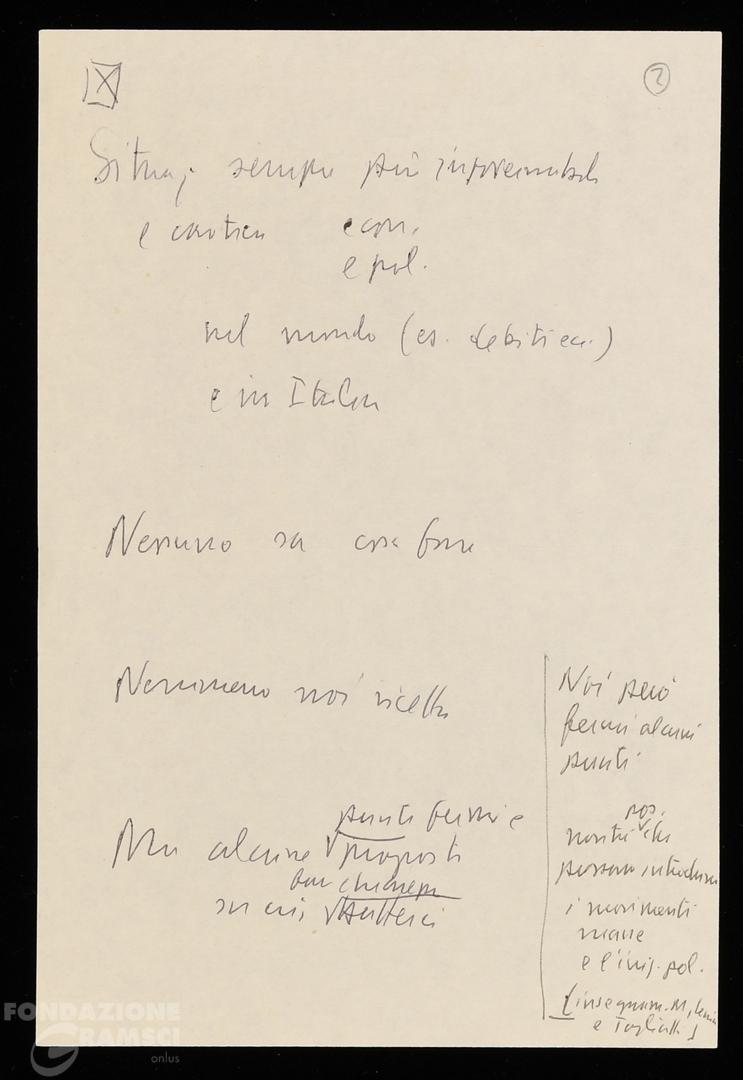 X
2
Situaz. sempre più ingovernabile
e caotica econ.
e pol.
nel mondo (es. debiti ecc.)
e in Italia
Nessuno sa cosa fare
Nemmeno noi ricette
punti fermi e
Ma alcune proposte
ben
su cui batterci
Noi però
fermi alcuni
punti
pos.
nostri che
possano introdurre
i movimenti
masse
e l'iniz. pol.
(insegnam. M, Lenin
e Togliatti)
FONDAZIONE
GRAMSCI
onlus